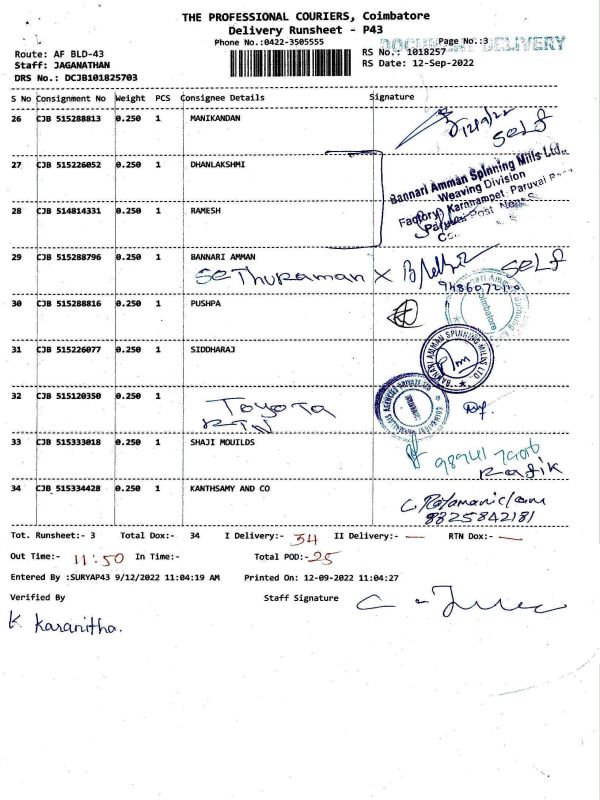 THE PROFESSIONAL COURIERS, Coimbatore
Delivery Runsheet - P43
Phone No.:0422-3505555
Page No.:3
DOCUMENT DELIVERY
Route: AF BLD-43
RS No.: 1018257
Staff: JAGANATHAN
RS Date: 12-Sep-2022
DRS No.: DCJB101825703
S No Consignment No Weight PCS Consignee Details Signature
26 CJB 515288813 0.250 1 MANIKANDAN
12/9/22
SELF
27 CJB 515226052 0.250 1 DHANLAKSHMI
Bannari Amman Spinning Mills Ltd.,
Weaving Division
Factory: Karanampet, Paruvai
28 CJB 514814331 0.250 1 RAMESH
Paruvai Post
29 CJB 515288796 0.250 1 BANNARI AMMAN
SETHURAMAN X
SELF
30 CJB 515288816 0.250 1 PUSHPA
Coimbatore
31 CJB 515226077 0.250 1 SIDDHARAJ
BANNARI AMMAN SPINNING MILLS LTD.
32 CJB 515120350 0.250 1
TOYOTA
RTN
33 CJB 515333018 0.250 1 SHAJI MOUILDS
Rafik
34 CJB 515334428 0.250 1 KANTHSAMY AND CO
8825842181
Tot. Runsheet:- 3 Total Dox:- 34 I Delivery:- 34 II Delivery:- — RTN Dox:- —
Out Time:- 11:50 In Time:- Total POD:- 25
Entered By :SURYAP43 9/12/2022 11:04:19 AM Printed On: 12-09-2022 11:04:27
Verified By Staff Signature
K. Karanitha.